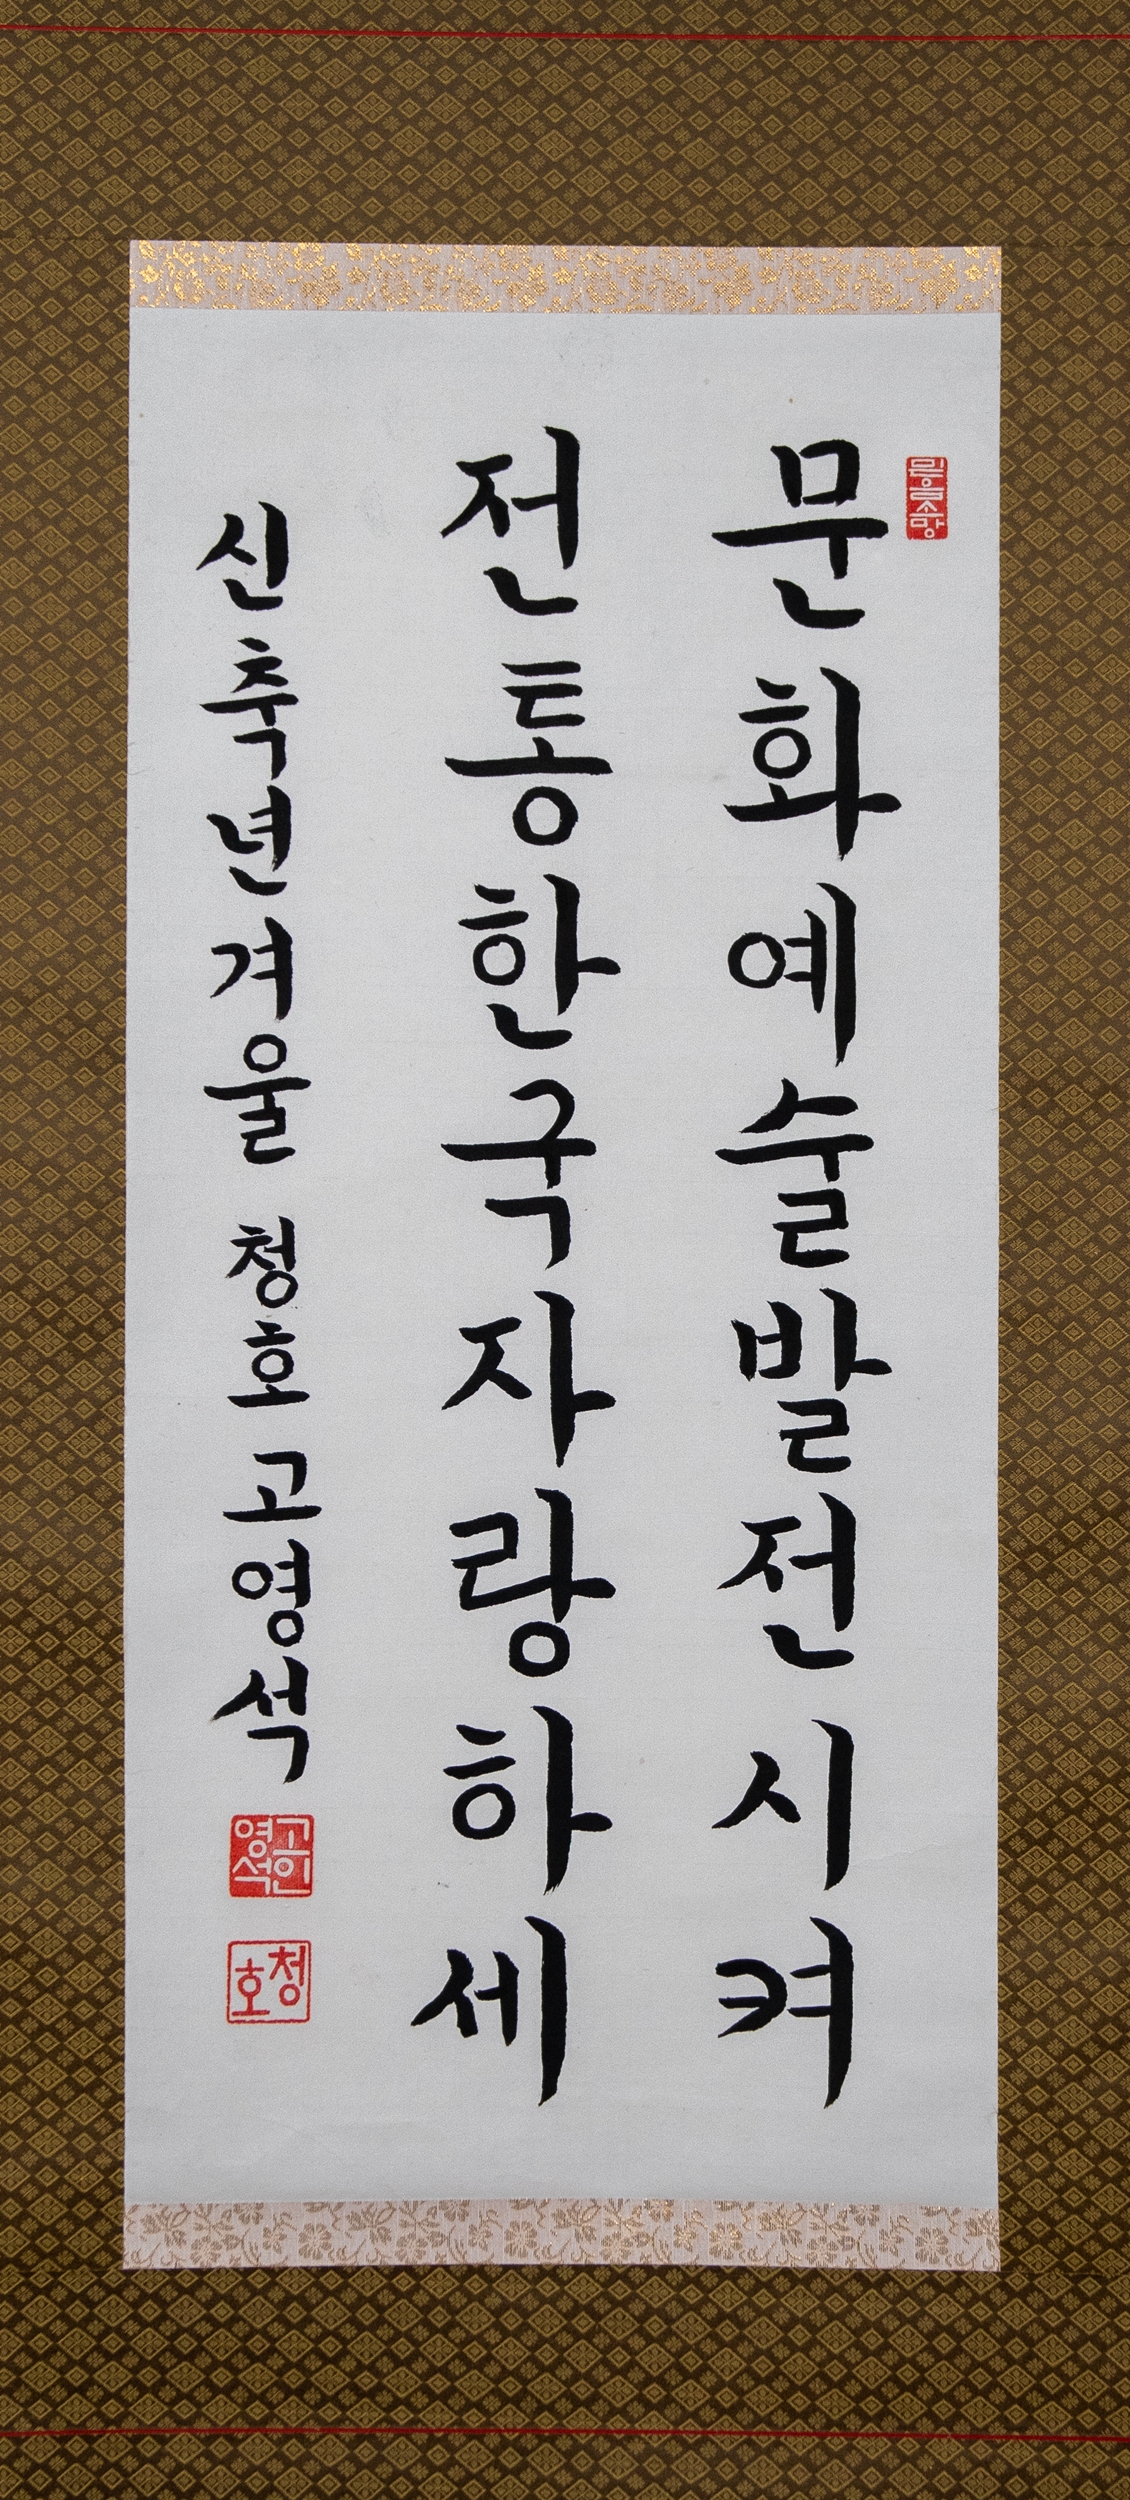 문화예술발전시켜
전통한국자랑하세
신축년겨울 청호 고영석
믿음소망
고영석인
청호